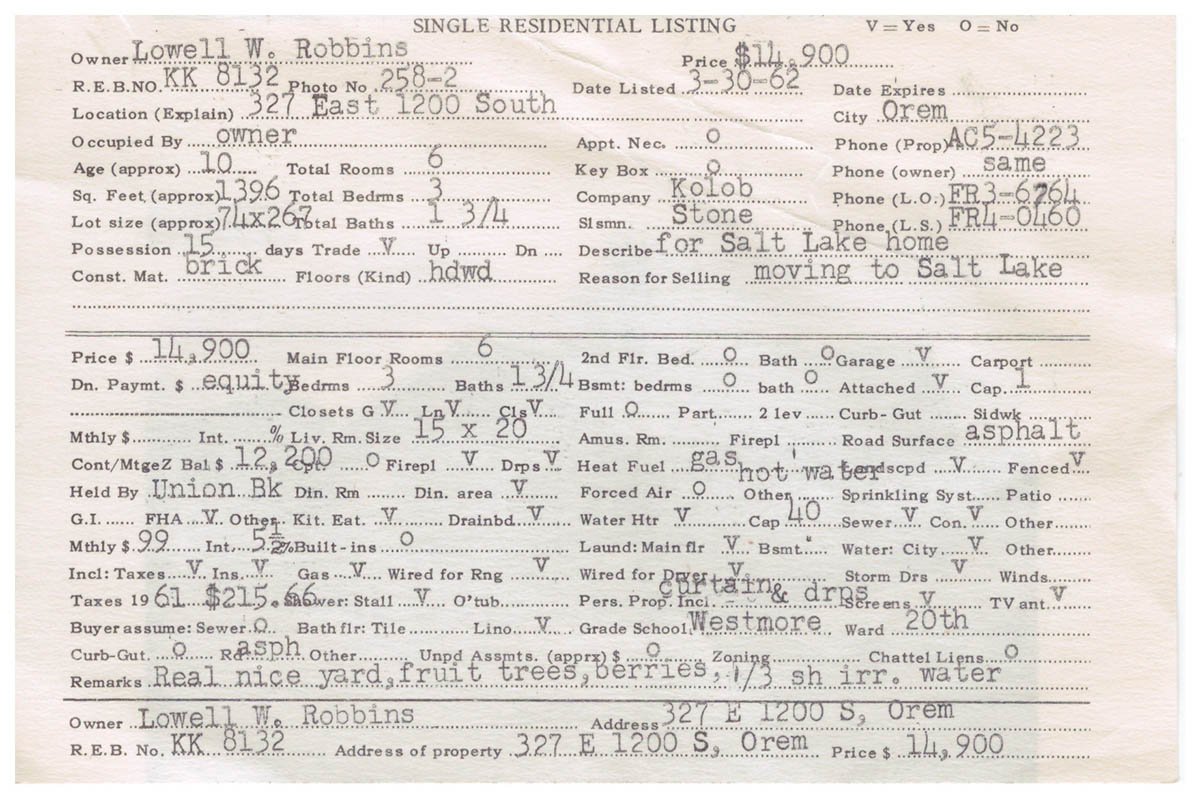 SINGLE RESIDENTIAL LISTING V = Yes O = No
Owner Lowell W. Robbins Price $14,900
R.E.B.NO. KK 8132 Photo No 258-2 Date Listed 3-30-62 Date Expires
Location (Explain) 327 East 1200 South City Orem
Occupied By owner Appt. Nec. O Phone (Prop) AC5-4223
Age (approx) 10 Total Rooms 6 Key Box O Phone (owner) same
Sq. Feet (approx) 1,396 Total Bedrms 3 Company Kolob Phone (L.O.) FR3-6764
Lot size (approx) 74x267 Total Baths 1 3/4 Slsmn. Stone Phone (L.S.) FR4-0460
Possession 15 days Trade V Up Dn Describe for Salt Lake home
Const. Mat. brick Floors (Kind) hdwd Reason for Selling moving to Salt Lake
Price $ 14,900 Main Floor Rooms 6 2nd Flr. Bed. O Bath O Garage V Carport
Dn. Paymt. $ equity Bedrms 3 Baths 1 3/4 Bsmt: bedrms O bath O Attached V Cap. 1
Closets G V Ln V Cls V Full O Part. 2 lev Curb- Gut Sidwk
Mthly $ Int. % Liv. Rm. Size 15 x 20 Amus. Rm. Firepl Road Surface asphalt
Cont/MtgeZ Bal $ 12,200 Cpt. O Firepl V Drps V Heat Fuel gas hot water Landscpd V Fenced V
Held By Union Bk Din. Rm Din. area V Forced Air O Other Sprinkling Syst. Patio
G.I. FHA V Other Kit. Eat. V Drainbd. V Water Htr V Cap 40 Sewer V Con. V Other
Mthly $ 99 Int. 5 1/2 % Built-ins O Laund: Main flr V Bsmt. " Water: City V Other
Incl: Taxes V Ins. V Gas V Wired for Rng V Wired for Dryer V Storm Drs V Winds.
Taxes 19 61 $215.66 Shower: Stall V O'tub. Pers. Prop. Incl. curtain & drps Screens V TV ant. V
Buyer assume: Sewer O Bath flr: Tile Lino. V Grade School Westmore Ward 20th
Curb-Gut. O Rd asph Other Unpd Assmts. (apprx) $ O Zoning Chattel Liens O
Remarks Real nice yard, fruit trees, berries, 1/3 sh irr. water
Owner Lowell W. Robbins Address 327 E 1200 S, Orem
R.E.B. No. KK 8132 Address of property 327 E 1200 S, Orem Price $ 14,900